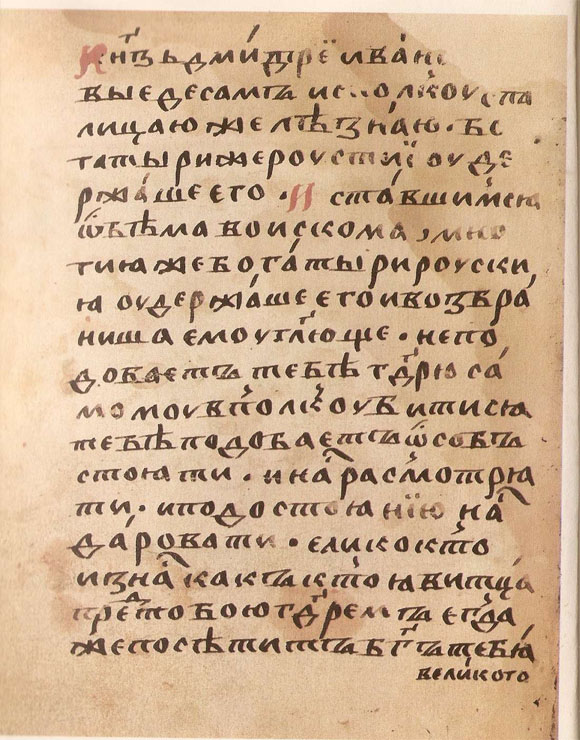 Кн҃зь дми́трѐй ива́н
выеде самъ ис полкоу с па
лицаю желѣзною . бо
гатыри же роустиї оуде
ржа́ше его . И ста́вшимсꙗ
ѿбѣма воискома , мно
гиꙗ же бога́тыри роуски
ꙗ оудержа́ше его и возъбра́
ниша емоу гл҃юще . непо
добаетъ тебѣ гд҃рю са
момоу в полкоу битисꙗ
тебѣ подобаетъ ѿсобъ
стоꙗти . и на расмотрꙗ
ти . и по достоꙗнїю на
да́ровати . елико кто
из на какъ кто ꙗвитца
пред тобою гд҃ремъ егда
же посѣтитъ бг҃ъ тебꙗ
великого